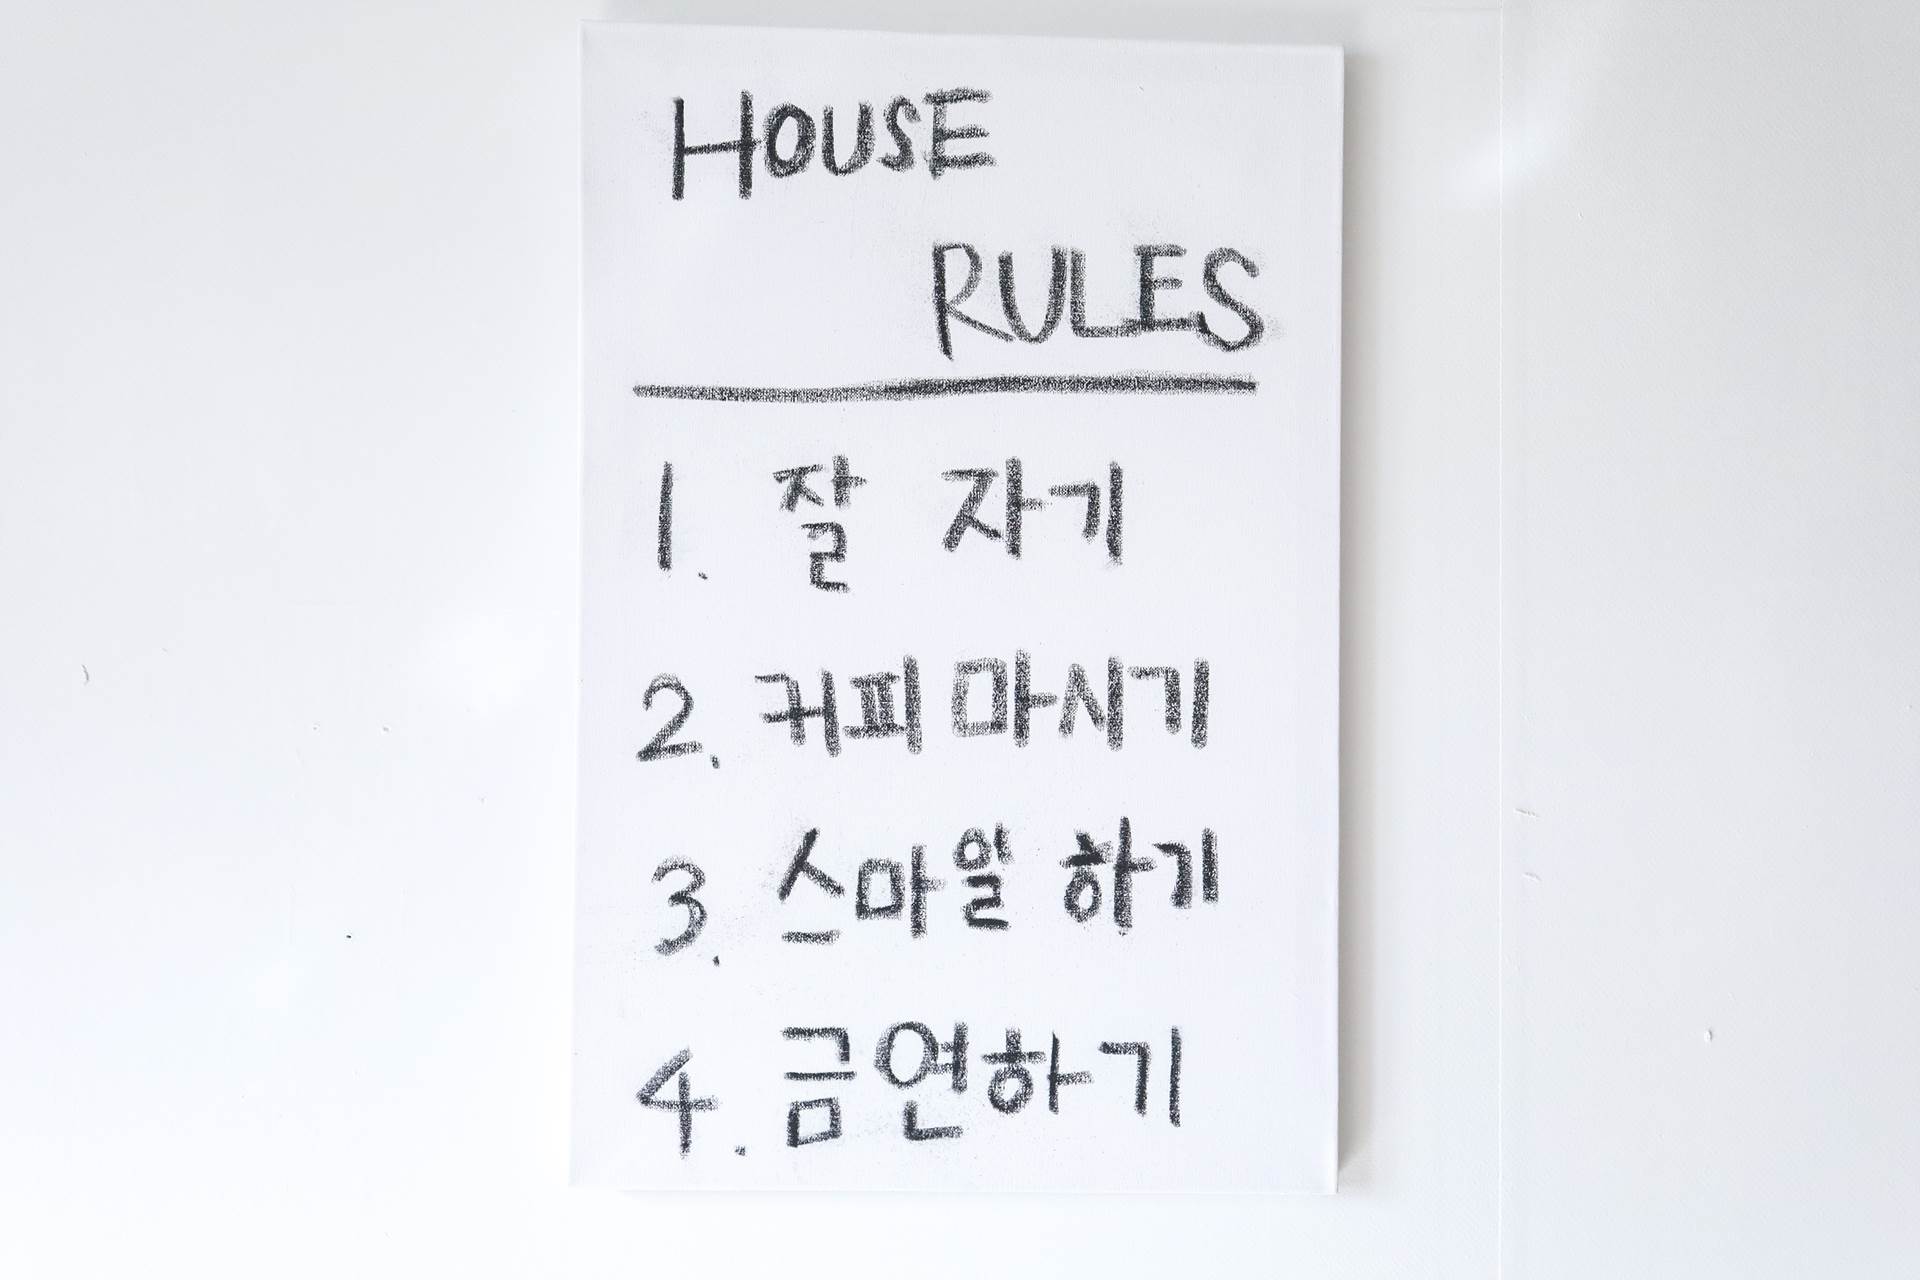 HOUSE
RULES
1. 잘 자기
2. 커피 마시기
3. 스마일 하기
4. 금연하기